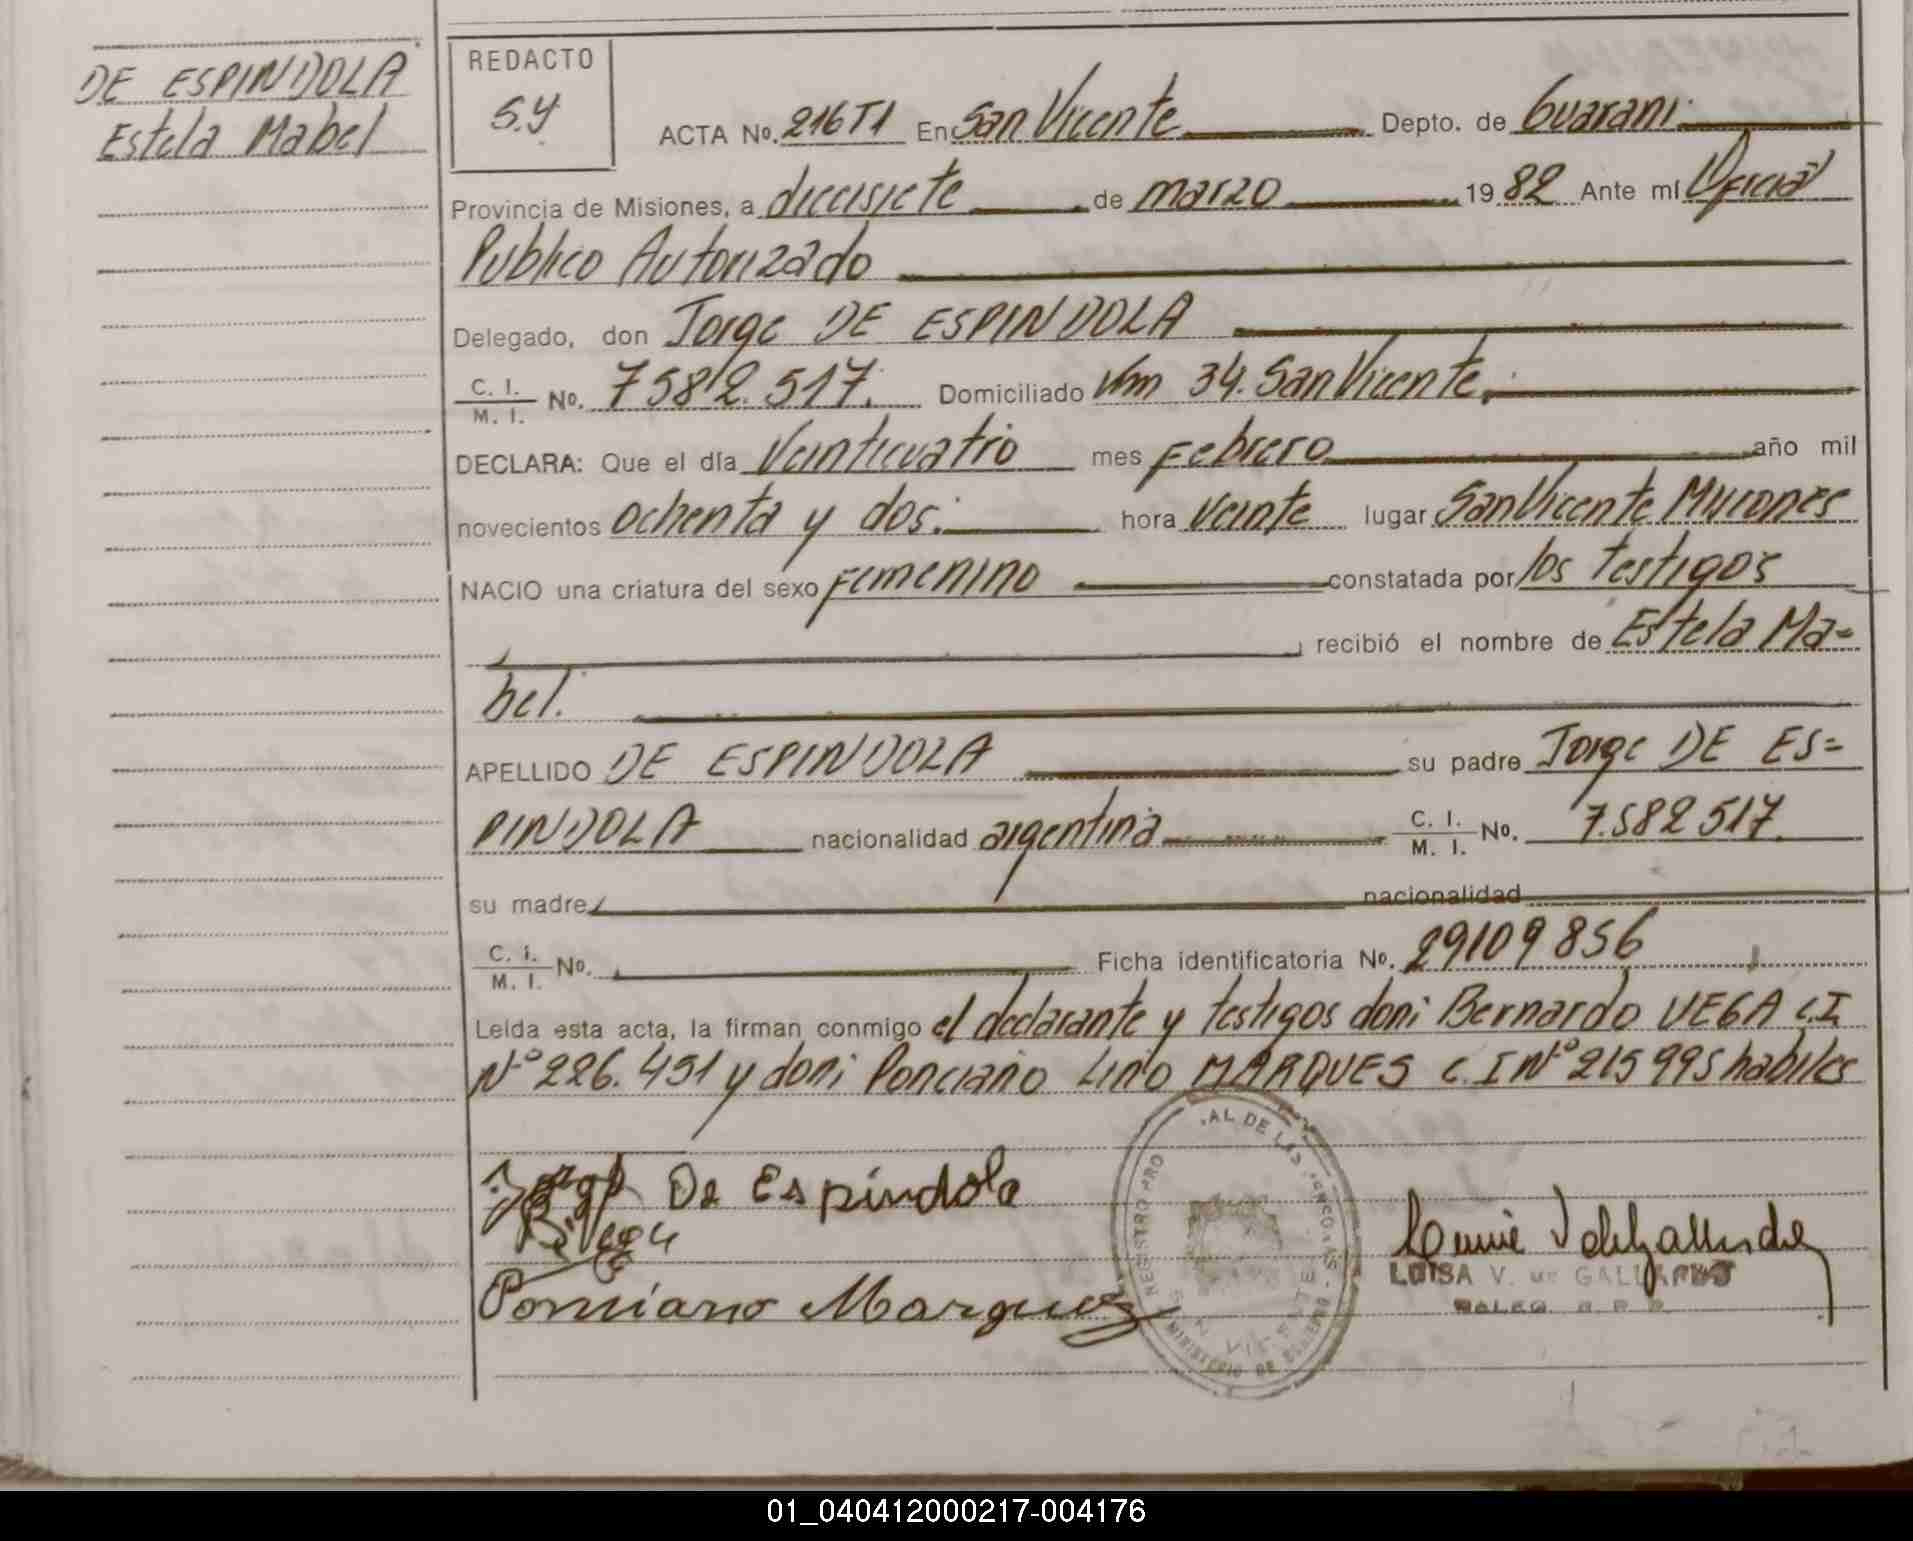 DE ESPINDOLA
Estela Mabel
REDACTO
S.Y
ACTA No. 216 T1 En San Vicente Depto. de Guarani
Provincia de Misiones, a diecisiete de marzo 19 82 Ante mí Oficial
Publico Autorizado
Delegado, don Jorge DE ESPINDOLA
C. I. / M. I. No. 7582.517. Domiciliado Km 34. San Vicente.
DECLARA: Que el día Veinticuatro mes Febrero año mil
novecientos ochenta y dos. hora veinte lugar San Vicente Misiones
NACIO una criatura del sexo Femenino constatada por los testigos
recibió el nombre de Estela Ma=
bel.
APELLIDO DE ESPINDOLA su padre Jorge DE ES=
PINDOLA nacionalidad argentina C. I. / M. I. No. 7.582517.
su madre nacionalidad
C. I. / M. I. No. Ficha identificatoria No. 29109856
Leída esta acta, la firman conmigo el declarante y testigos don: Bernardo VEGA C.I.
Nº 226.451 y don: Ponciano Lino MARQUES C.I Nº 215995 habiles
Jorge De Espindola
B. Vega
Ponciano Marquez
LUISA V. de GALLARDO
MINISTERIO DE GOBIERNO
SAN VICENTE
01_040412000217-004176